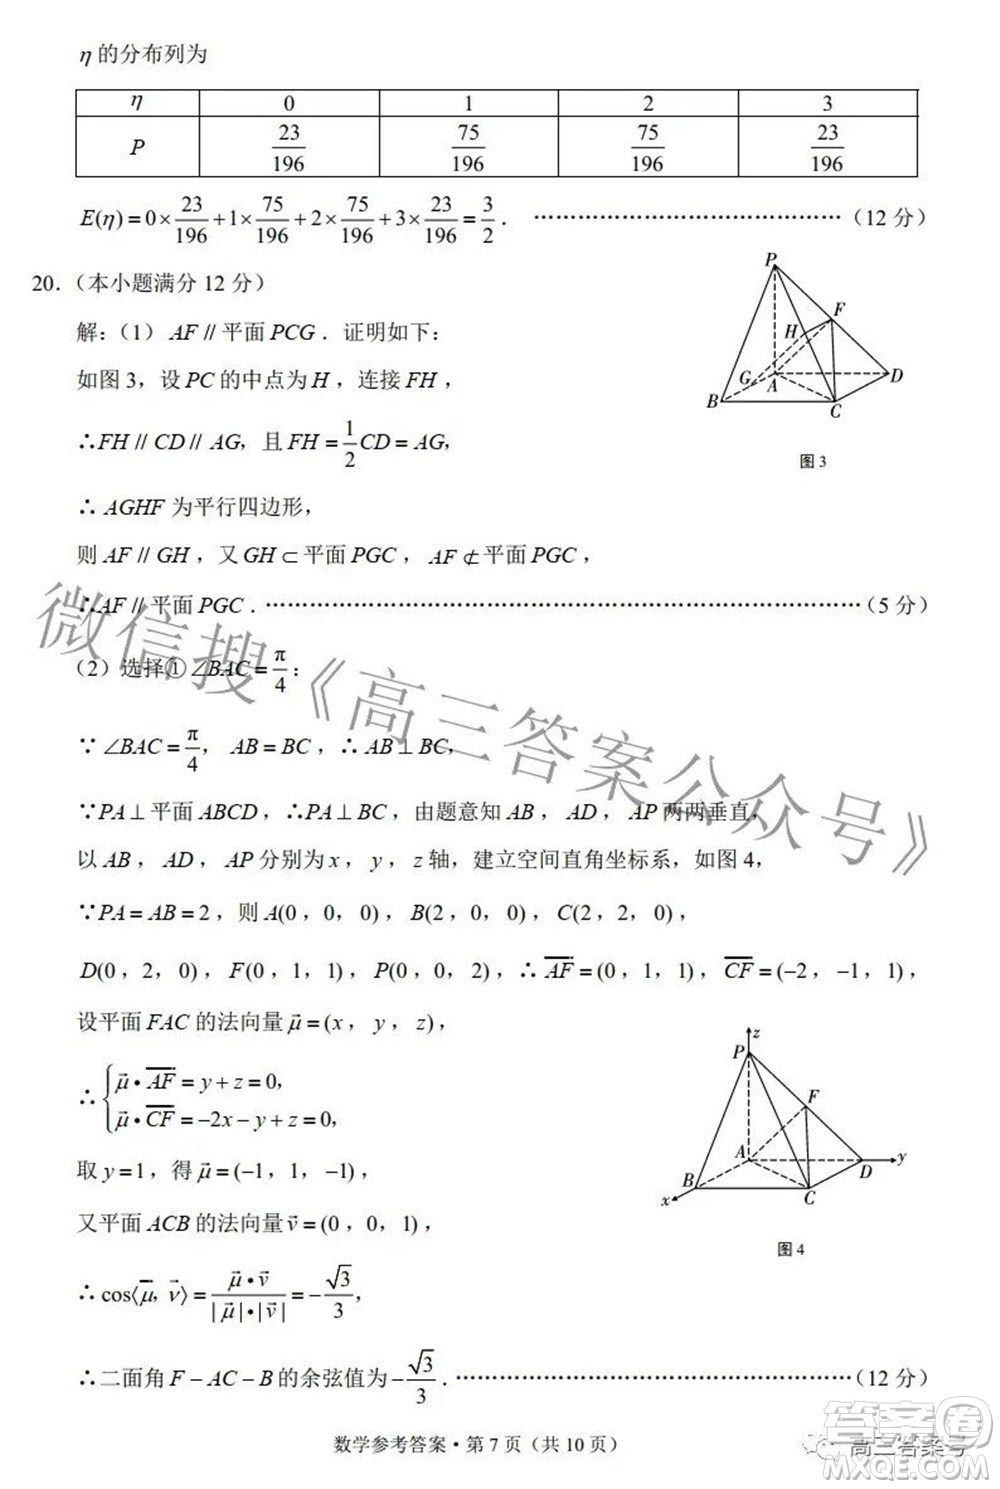 η 的分布列为
η 0 1 2 3
P 23/196 75/196 75/196 23/196
E(η)=0×23/196+1×75/196+2×75/196+3×23/196=3/2． ……………………………………（12 分）
20．（本小题满分 12 分）
解：（1） AF // 平面 PCG ．证明如下：
如图 3，设 PC 的中点为 H ，连接 FH ，
∴FH // CD // AG，且 FH = 1/2 CD = AG，
∴ AGHF 为平行四边形，
则 AF // GH ，又 GH ⊂ 平面 PGC ， AF ⊄ 平面 PGC ，
∴AF // 平面 PGC ．……………………………………………………………………（5 分）
P
F
H
G
A
D
B
C
图 3
（2）选择① ∠BAC = π/4：
∵ ∠BAC = π/4， AB = BC ，∴ AB ⊥ BC，
∵PA ⊥ 平面 ABCD ，∴PA ⊥ BC ，由题意知 AB， AD ， AP 两两垂直，
以 AB， AD， AP 分别为 x ， y ， z 轴，建立空间直角坐标系，如图 4，
∵PA = AB = 2 ，则 A(0，0，0)，B(2，0，0)，C(2，2，0)，
D(0，2，0)，F(0，1，1)，P(0，0，2)，∴ AF = (0，1，1)，CF = (−2，−1，1)，
设平面 FAC 的法向量 μ⃗ = (x ， y ， z)，
∴ { μ⃗•AF = y + z = 0，
μ⃗•CF = −2x − y + z = 0，
取 y = 1，得 μ⃗ = (−1，1，−1)，
又平面 ACB 的法向量 v⃗ = (0，0，1)，
∴ cos⟨μ⃗，v⃗⟩ = μ⃗•v⃗/|μ⃗|•|v⃗| = −√3/3，
∴二面角 F − AC − B 的余弦值为 −√3/3．…………………………………………（12 分）
z
P
F
A
D
y
B
x
C
图 4
数学参考答案·第 7 页（共 10 页）
微信搜《高三答案公众号》
高三答案号
答案卷
MXQE.COM